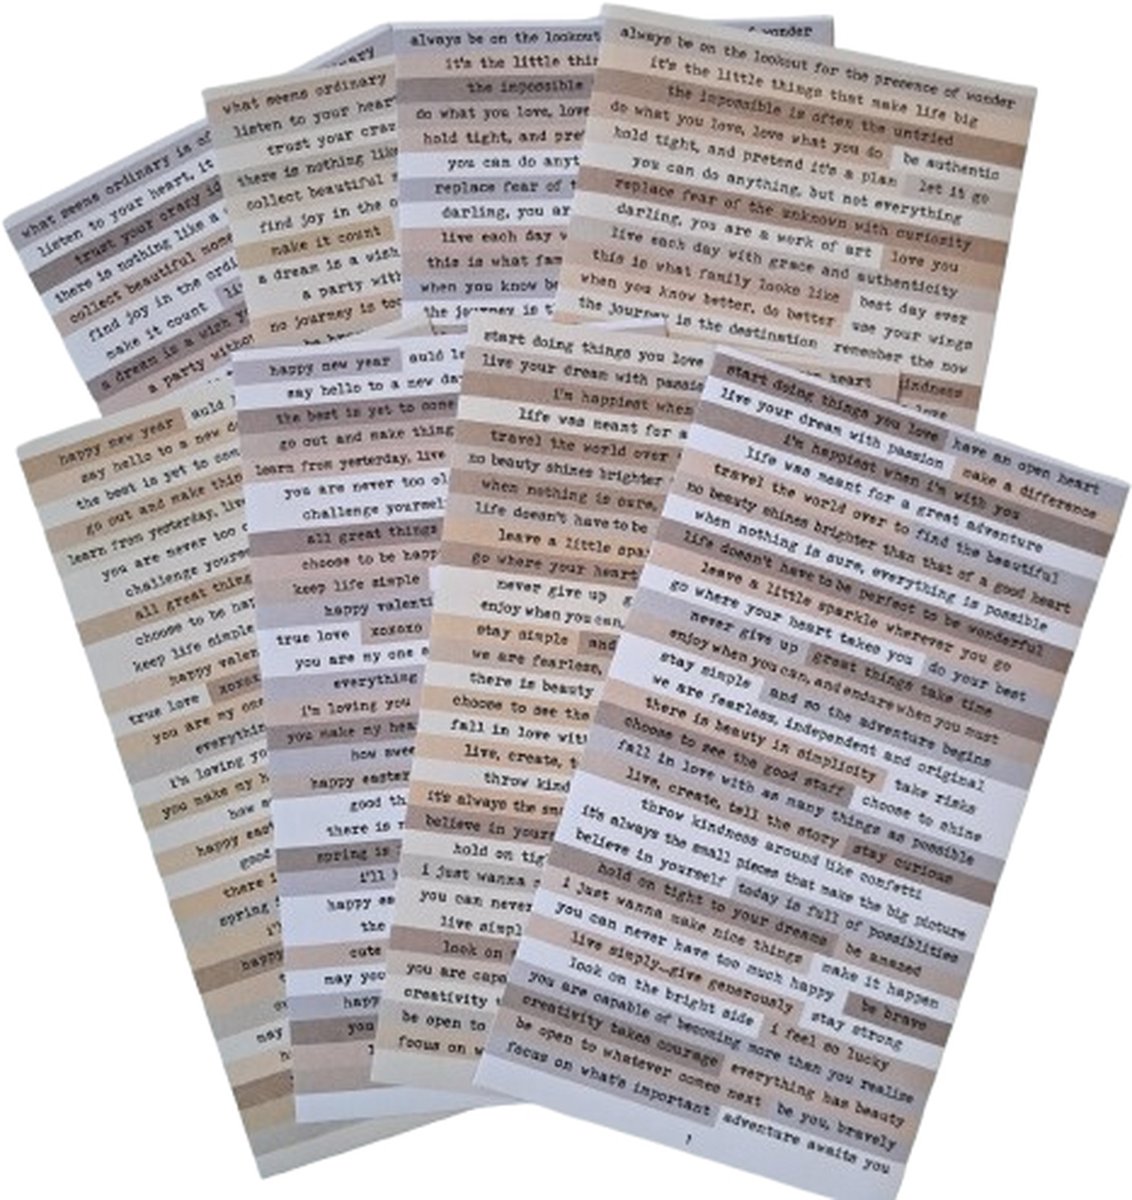 what seems ordinary is
listen to your heart, it
trust your crazy
there is nothing like a
collect beautiful
find joy in the
make it count
a dream is a wish
a party
ordinary
what seems ordinary
listen to your heart
trust your
there is nothing like
collect beautiful
find joy in the
make it count
a dream is a wish
a party
no journey is too
wonder
always be on the lookout
it's the little
the impossible
do what you love, love
hold tight, and
you can do
replace fear of
darling, you
live each day
this is what
when you know
the journey is
always be on the lookout for the presence of wonder
it's the little things that make life big
the impossible is often the untried
do what you love, love what you do be authentic
hold tight, and pretend it's a plan let it go
you can do anything, but not everything
replace fear of the unknown with curiosity
darling, you are a work of art love you
live each day with grace and authenticity
this is what family looks like best day ever
when you know better, do better use your wings
the journey is the destination remember the now
heart
love
happy new year auld
say hello to a new
the best is yet to
go out and make
learn from yesterday, live
you are never too
challenge
all great
choose to be
keep life simple
happy
true love
you are my
everything
i'm loving
you make my
how
happy
good
there
spring
happy
may
happy new year auld
say hello to a new day
the best is yet to come
go out and make
learn from yesterday, live
you are never too
challenge
all great things
choose to be
keep life simple
happy
true love xoxoxo
you are my one
everything
i'm loving you
you make my
how
happy easter
good
there is
spring is
i'll
happy
the
cute
may you
happy
you
start doing things you love
live your dream with
i'm happiest when
life was meant for a
travel the world over
no beauty shines brighter
when nothing is sure,
life doesn't have to be
leave a little
go where your heart
never give up
enjoy when you can,
stay simple and
we are fearless,
there is beauty
choose to see the
fall in love with
live, create,
throw
it's always the
believe in
hold on
i just wanna
you can never
live
look on
you are
creativity
be open to
focus on
start doing things you love have an open heart
live your dream with passion make a difference
i'm happiest when i'm with you
life was meant for a great adventure
travel the world over to find the beautiful
no beauty shines brighter than that of a good heart
when nothing is sure, everything is possible
life doesn't have to be perfect to be wonderful
leave a little sparkle wherever you go
go where your heart takes you do your best
never give up great things take time
enjoy when you can, and endure when you must
stay simple and so the adventure begins
we are fearless, independent and original
there is beauty in simplicity take risks
choose to see the good stuff choose to shine
fall in love with as many things as possible
live, create, tell the story stay curious
throw kindness around like confetti
it's always the small pieces that make the big picture
believe in yourself today is full of possiblities
hold on tight to your dreams be amazed
i just wanna make nice things make it happen
you can never have too much happy be brave
live simply...give generously stay strong
look on the bright side i feel so lucky
you are capable of becoming more than you realise
creativity takes courage everything has beauty
be open to whatever comes next be you, bravely
focus on what's important adventure awaits you